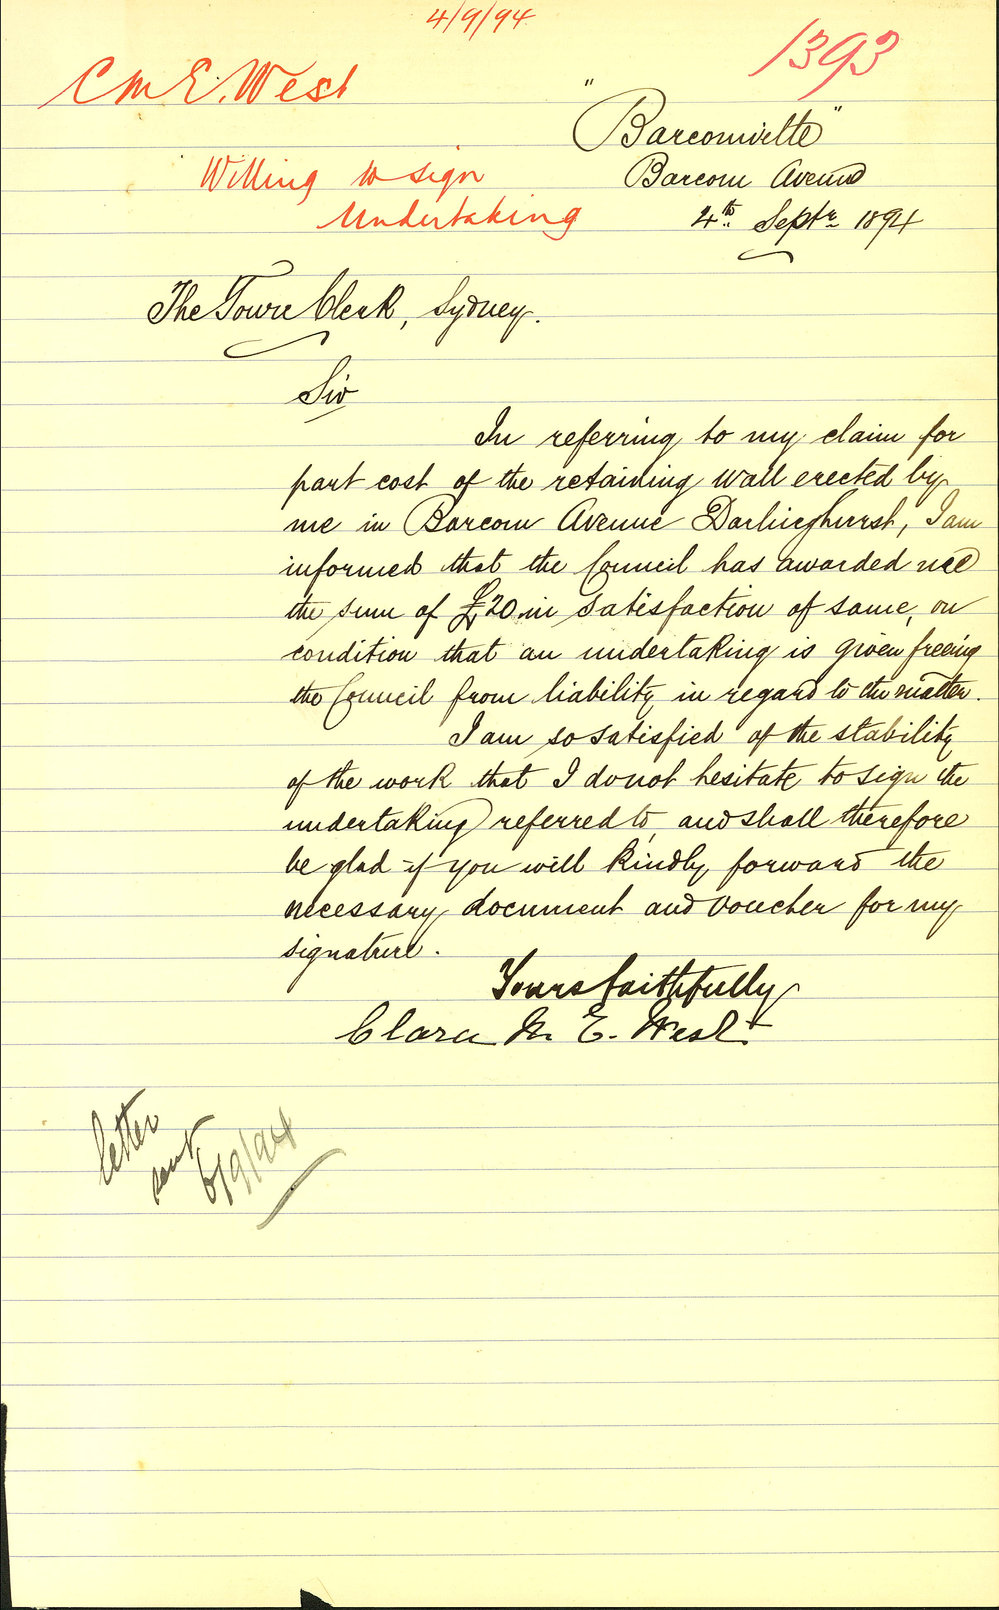 4/9/94
1393
C M E. West
"Barcomville"
Willing to sign
Undertaking
Barcom Avenue
4th Septr 1894
The Town Clerk, Sydney.
Sir
In referring to my claim for
part cost of the retaining wall erected by
me in Barcom Avenue Darlinghurst, I am
informed that the Council has awarded me
the sum of £20 in satisfaction of same, on
condition that an undertaking is given freeing
the Council from liability in regard to the matter.
I am so satisfied of the stability
of the work that I do not hesitate to sign the
undertaking referred to, and shall therefore
be glad if you will kindly forward the
necessary document and voucher for my
signature.
Yours faithfully
Clara M. E. West
letter
sent
6/9/94